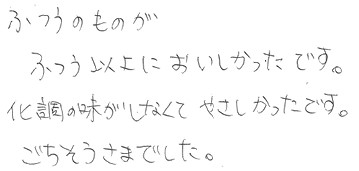 ふつうのものが
ふつう以上においしかったです。
化調の味がしなくてやさしかったです。
ごちそうさまでした。